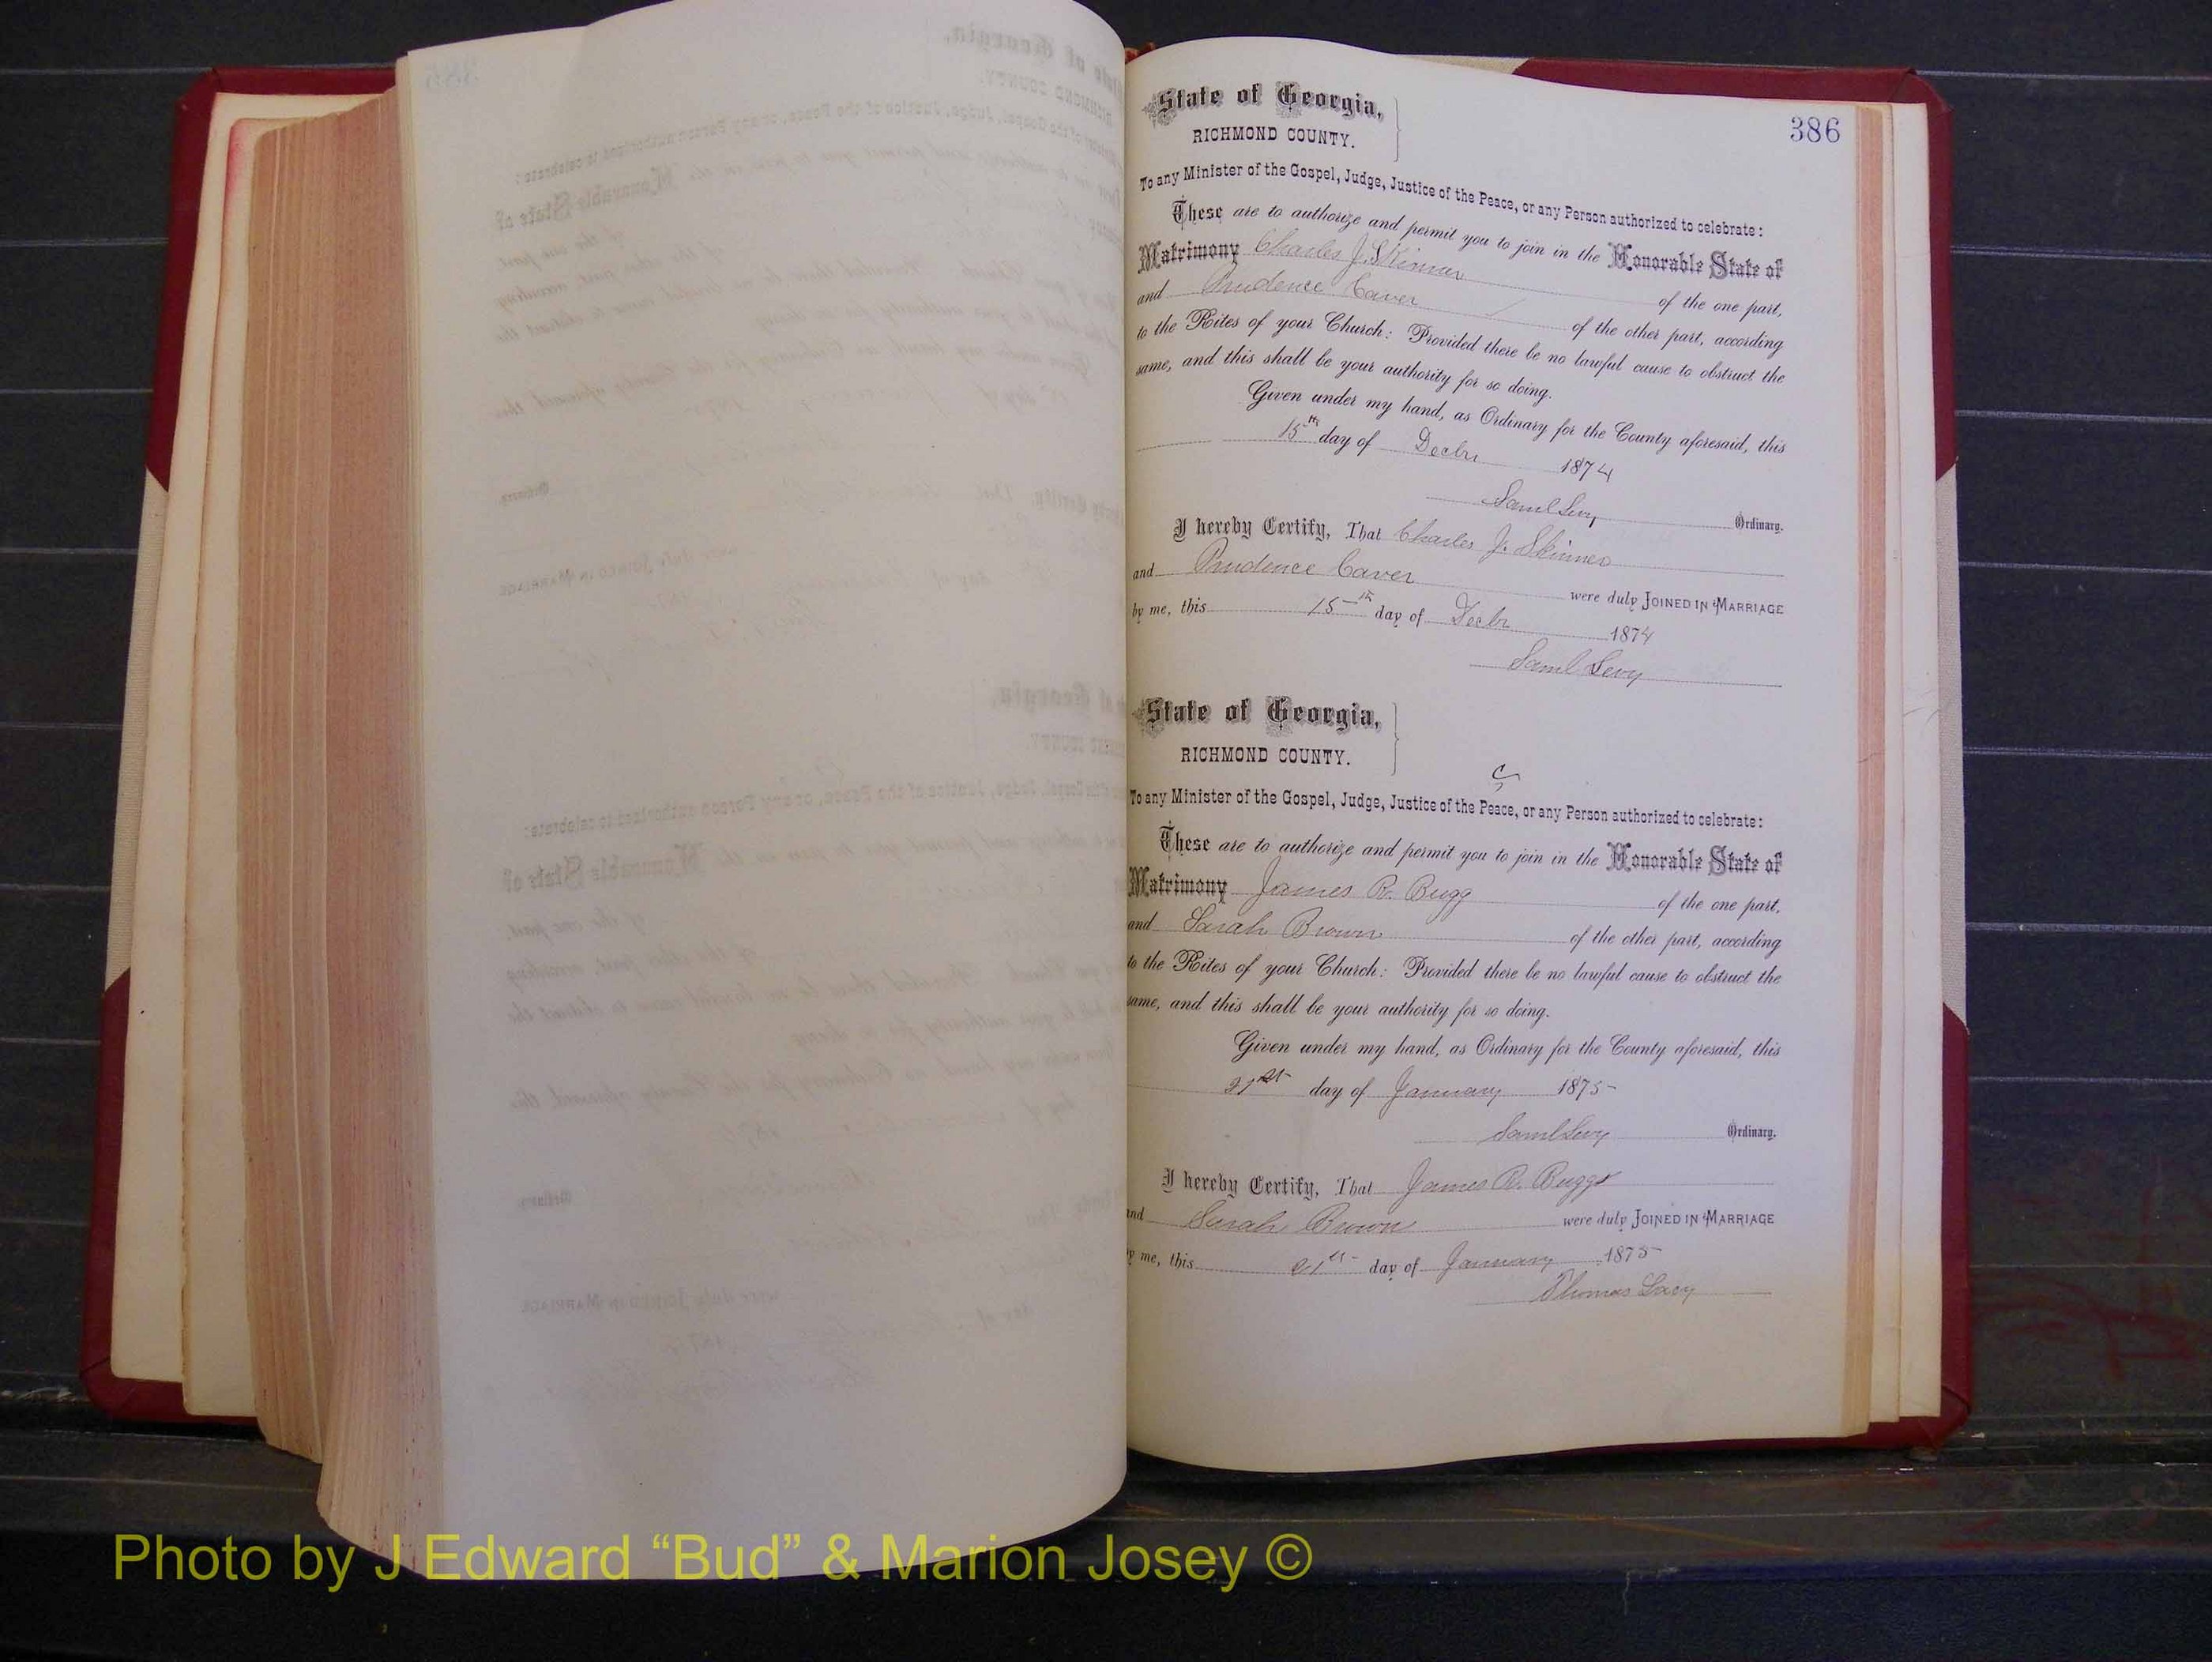 386
State of Georgia,
RICHMOND COUNTY.
To any Minister of the Gospel, Judge, Justice of the Peace, or any Person authorized to celebrate:
These are to authorize and permit you to join in the Honorable State of
Matrimony Charles J. Skinner of the one part,
and Prudence Caver of the other part, according
to the Rites of your Church: Provided there be no lawful cause to obstruct the
same, and this shall be your authority for so doing.
Given under my hand, as Ordinary for the County aforesaid, this
15th day of Decbr 1874
Saml Levy Ordinary.
I hereby Certify, That Charles J. Skinner
and Prudence Caver were duly JOINED IN MARRIAGE
by me, this 15th day of Decbr 1874
Saml Levy
State of Georgia,
RICHMOND COUNTY.
C
To any Minister of the Gospel, Judge, Justice of the Peace, or any Person authorized to celebrate:
These are to authorize and permit you to join in the Honorable State of
Matrimony James R. Bugg of the one part,
and Sarah Brown of the other part, according
to the Rites of your Church: Provided there be no lawful cause to obstruct the
same, and this shall be your authority for so doing.
Given under my hand, as Ordinary for the County aforesaid, this
21st day of January 1875
Saml Levy Ordinary.
I hereby Certify, That James R. Buggs
and Sarah Brown were duly JOINED IN MARRIAGE
by me, this 21st day of January 1875
Thomas Lacy
Photo by J Edward “Bud” & Marion Josey ©